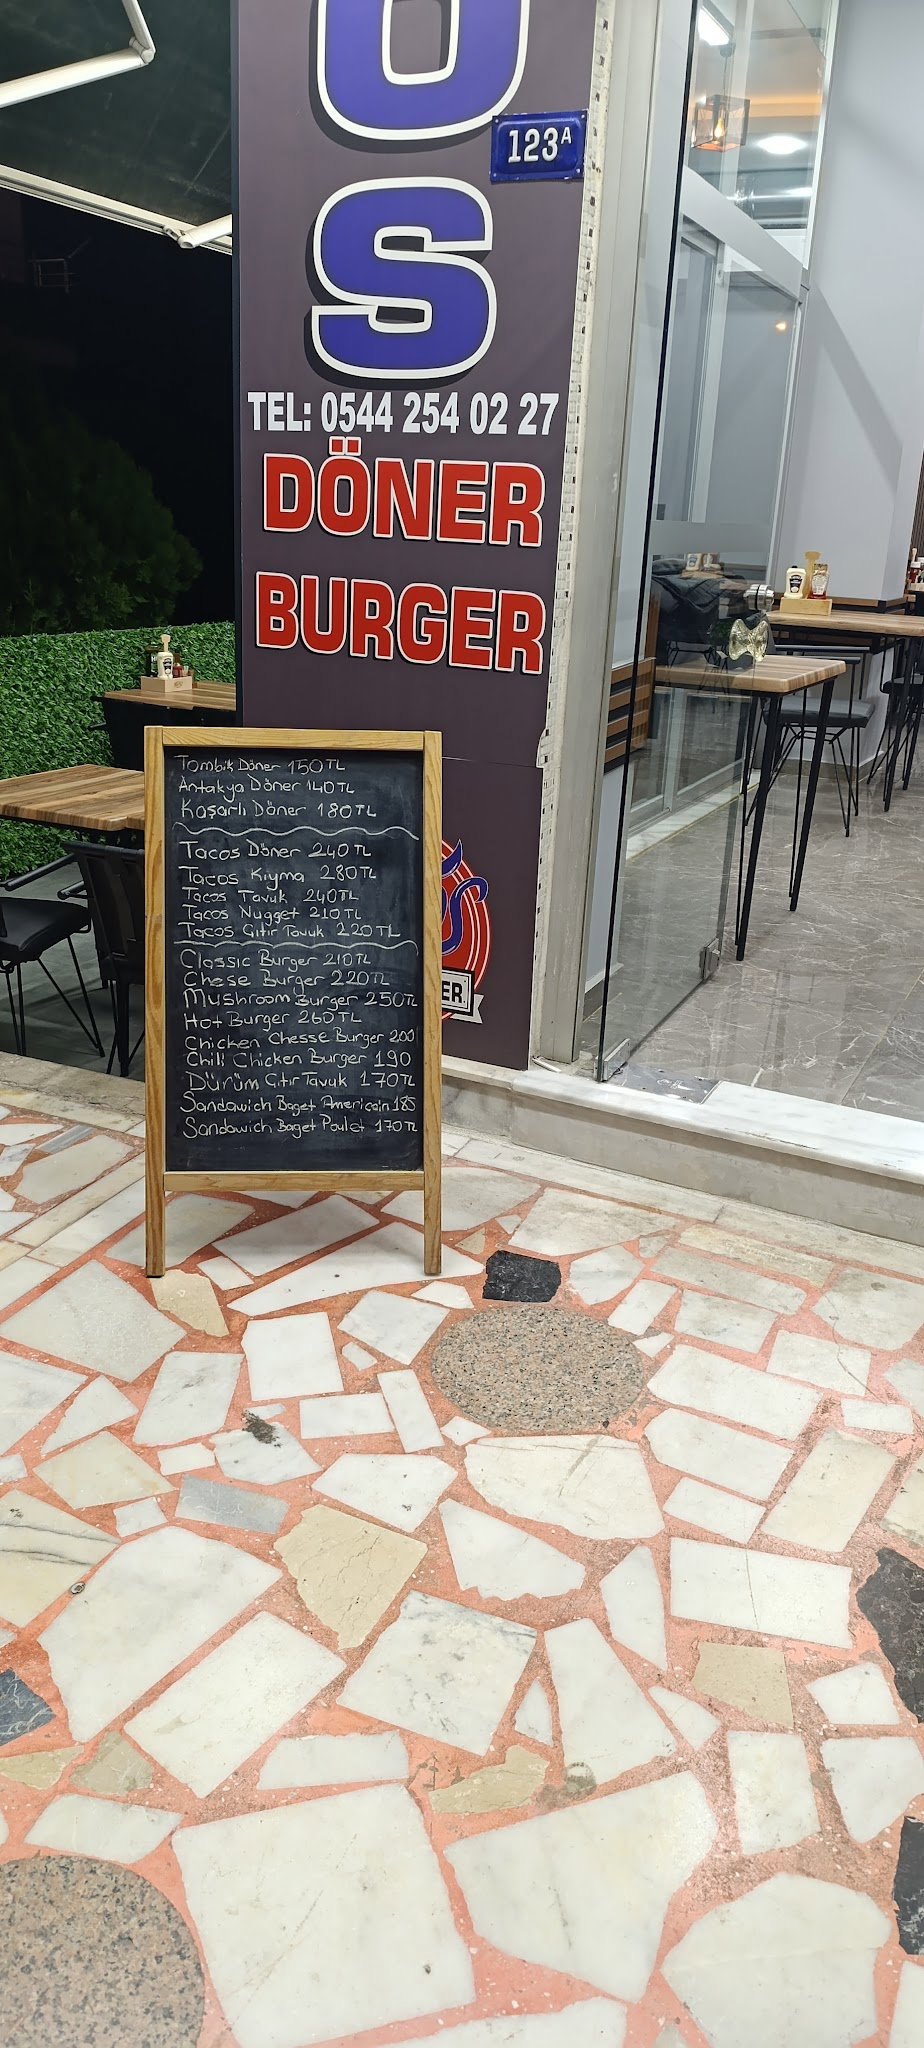 U
S
123A
TEL: 0544 254 02 27
DÖNER
BURGER
Tombik Döner 150TL
Antakya Döner 140TL
Kaşarlı Döner 180TL
Tacos Döner 240TL
Tacos Kıyma 280TL
Tacos Tavuk 240TL
Tacos Nugget 210TL
Tacos Gıtır Tavuk 220TL
Classic Burger 210TL
Chese Burger 220TL
Mushroom Burger 250TL
Hot Burger 260TL
Chicken Chesse Burger 200
Chili Chicken Burger 190
Dürüm Gıtır Tavuk 170TL
Sandawich Baget Americain 185
Sandawich Baget Poulet 170TL
S
ER